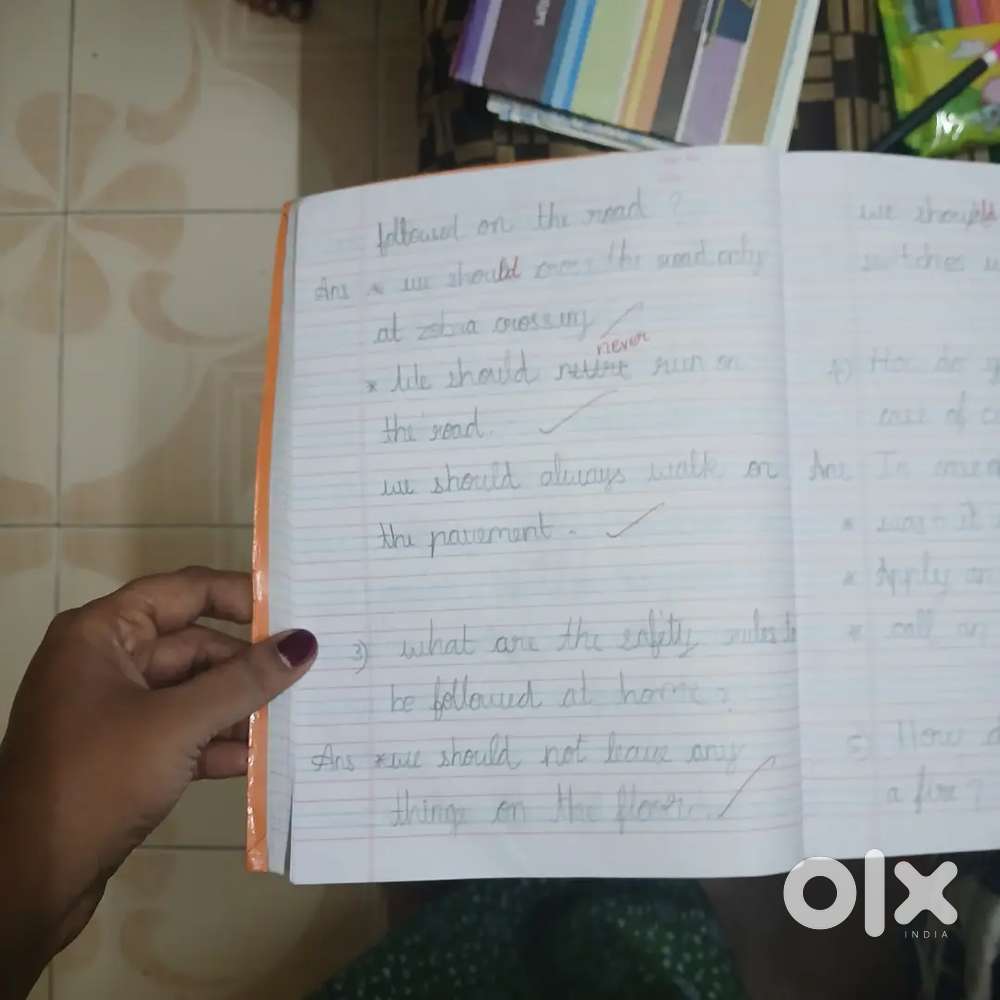 followed on the road ?
Ans * we should cross the road only
at zebra crossing
never
* We should run on
the road.
we should always walk on
the pavement.
3) what are the safety rules to
be followed at home?
Ans * we should not leave any
things on the floor.
we should
switches
4) How do
case of
Ans In
* wash it
* Apply an
* call an
5 How
a fire ?
OLX
INDIA